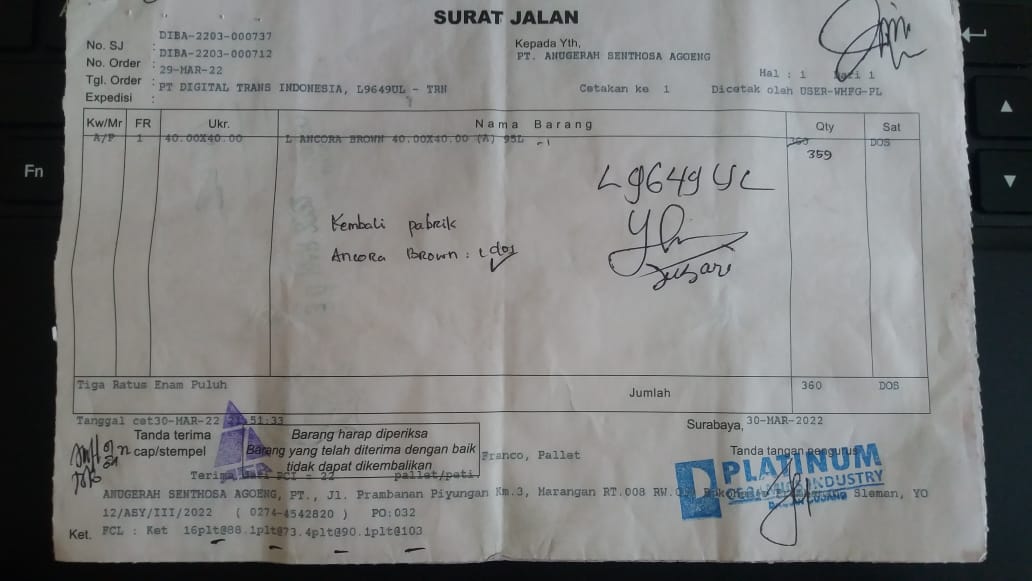 SURAT JALAN
No. SJ : DIBA-2203-000737
No. Order : DIBA-2203-000712
Tgl. Order : 29-MAR-22
Expedisi : PT DIGITAL TRANS INDONESIA, L9649UL - TRN
Kepada Yth,
PT. ANUGERAH SENTHOSA AGOENG
Hal : 1 Dari 1
Cetakan ke 1 Dicetak oleh USER-WHFG-PL
Kw/Mr FR Ukr. Nama Barang Qty Sat
A/P 1 40.00X40.00 L ANCORA BROWN 40.00X40.00 (A) 95L -1 360 DOS
359
L 9649 UL
Kembali pabrik
Ancora Brown : 1 dos
Tiga Ratus Enam Puluh
Jumlah 360 DOS
Tanggal cet30-MAR-22 21:51:33
Surabaya, 30-MAR-2022
Tanda terima
cap/stempel
Barang harap diperiksa
Barang yang telah diterima dengan baik
tidak dapat dikembalikan
Franco, Pallet
Tanda tangan pengurus
pallet/peti
PLATINUM
INDUSTRY
ANUGERAH SENTHOSA AGOENG, PT., Jl. Prambanan Piyungan Km.3, Marangan RT.008 RW. Sleman, YO
12/ASY/III/2022 ( 0274-4542820 ) PO:032
Ket. FCL : Ket 16plt@88.1plt@73.4plt@90.1plt@103
Fn